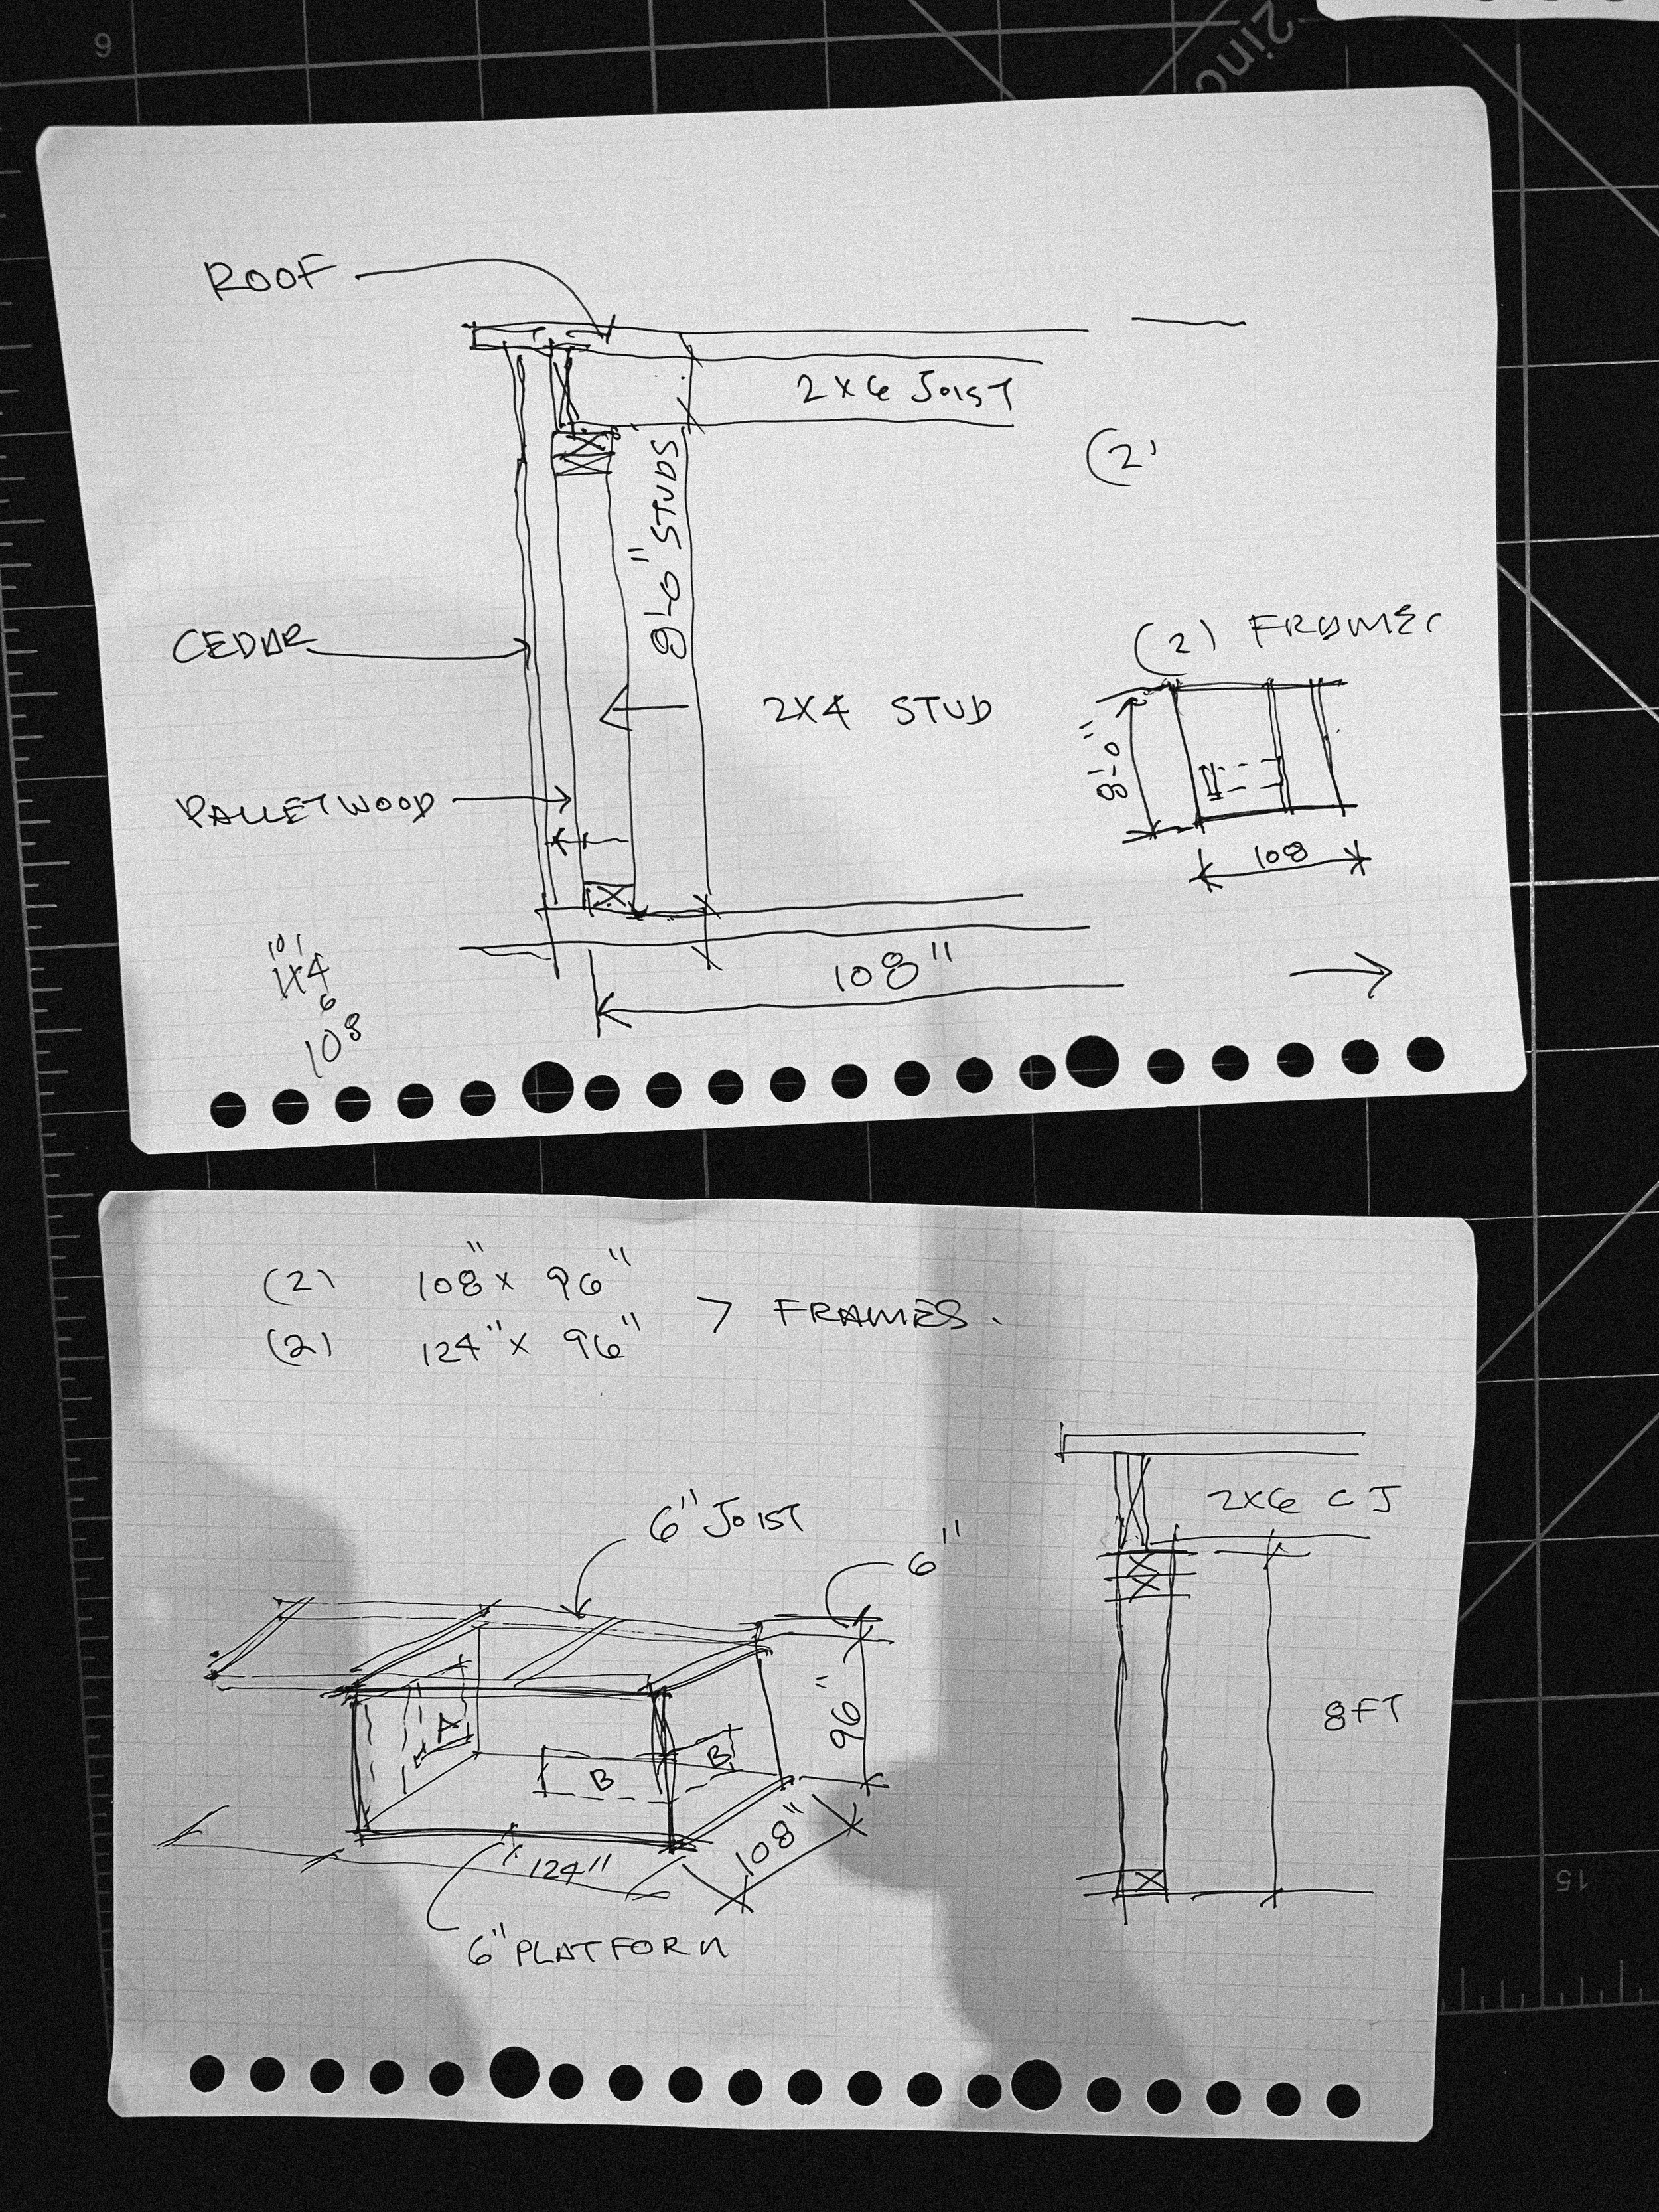 2inc
ROOF
2X6 JOIST
(2'
8'-0" STUDS
CEDAR
(2) FRAMES
2X4 STUD
8'-0"
PALLETWOOD
108
108"
10 1
114
6
108
(2) 108" x 96"
(2) 124" x 96" > FRAMES.
6" JOIST
2X6 CJ
6"
96"
8FT
A
B
B
108"
124"
6" PLATFORM
15